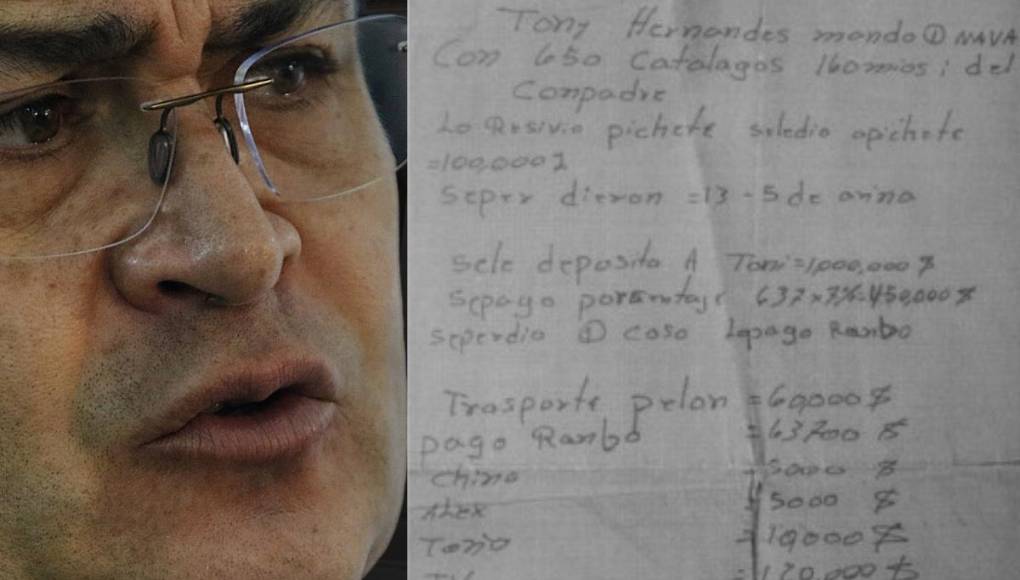 Tony Hernandes mando ① NAVA
Con 650 Catalagos 160 mios; del
Conpadre
Lo Resivio pichete seledio apichete
=100,000 $
Seper dieron =13 - 5 de arina
sele deposito A Toni=1,000,000 $
Sepago porsentaje 637x7%=450,000 $
seperdio ① coso Lopago Ranbo
Trasporte pelon =60,000 $
pago Ranbo =63700 $
Chino 5000 $
ALEX 5000 $
Tonio =10,000 $
=120,000 $